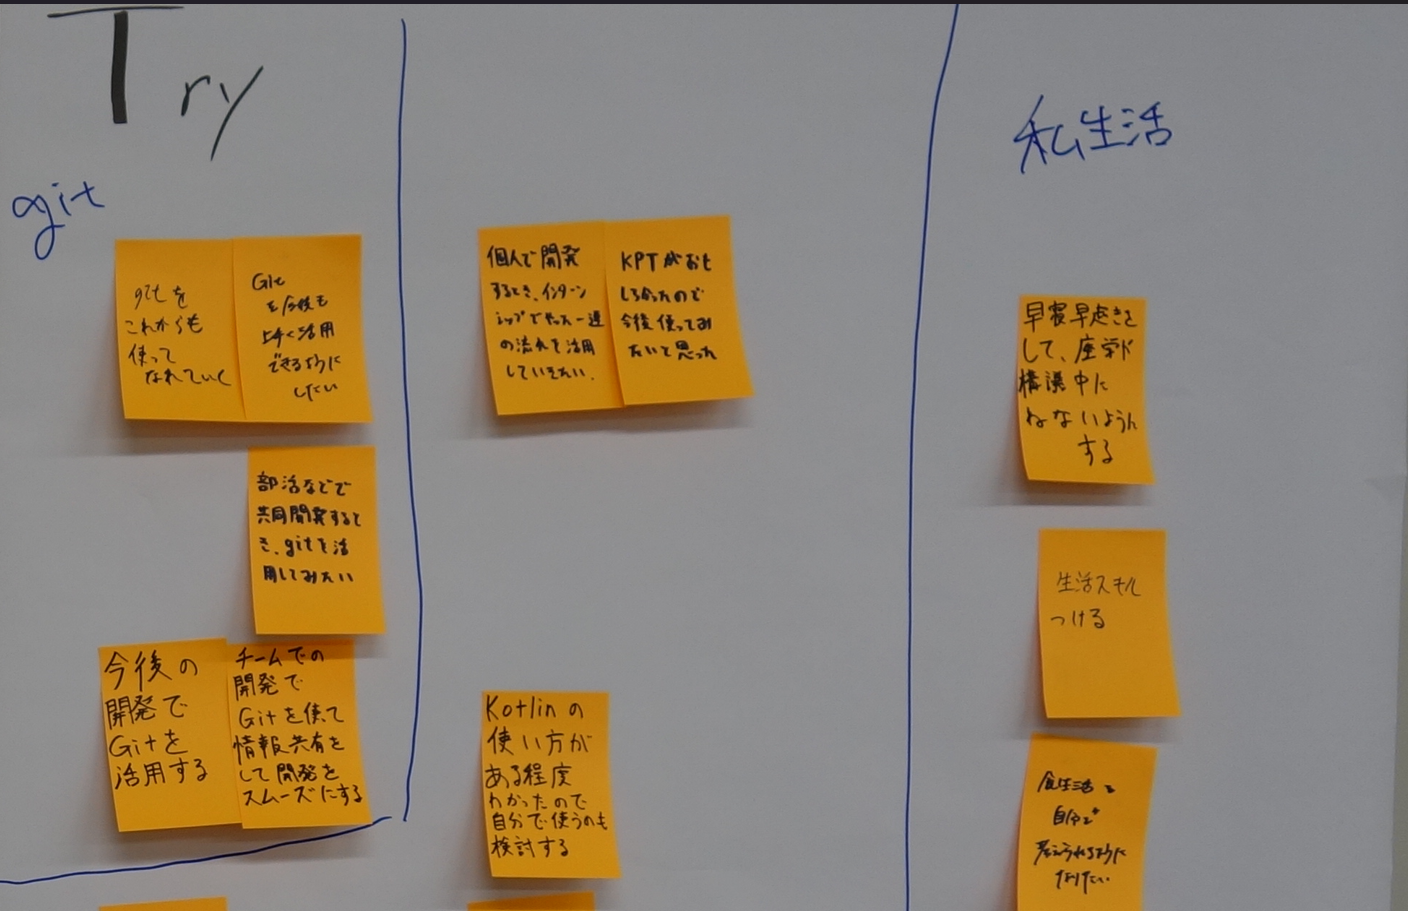 Try
git
gitを
これからも
使って
なれていく
Git
を今後も
上手く活用
できるように
したい
部活などで
共同開発すると
き、gitを活
用してみたい
今後の
開発で
Gitを
活用する
チームでの
開発で
Gitを使て
情報共有を
して開発を
スムーズにする
個人で開発
するとき、インターン
シップでやった一連
の流れを活用
していきたい.
KPTがおも
しろかったので
今後使ってみ
たいと思った
Kotlinの
使い方が
ある程度
わかったので
自分で使うのも
検討する
私生活
早寝早起きを
して、座学や
講議中に
ねないように
する
生活スキル
つける
食生活を
自分で
考えられるように
なりたい